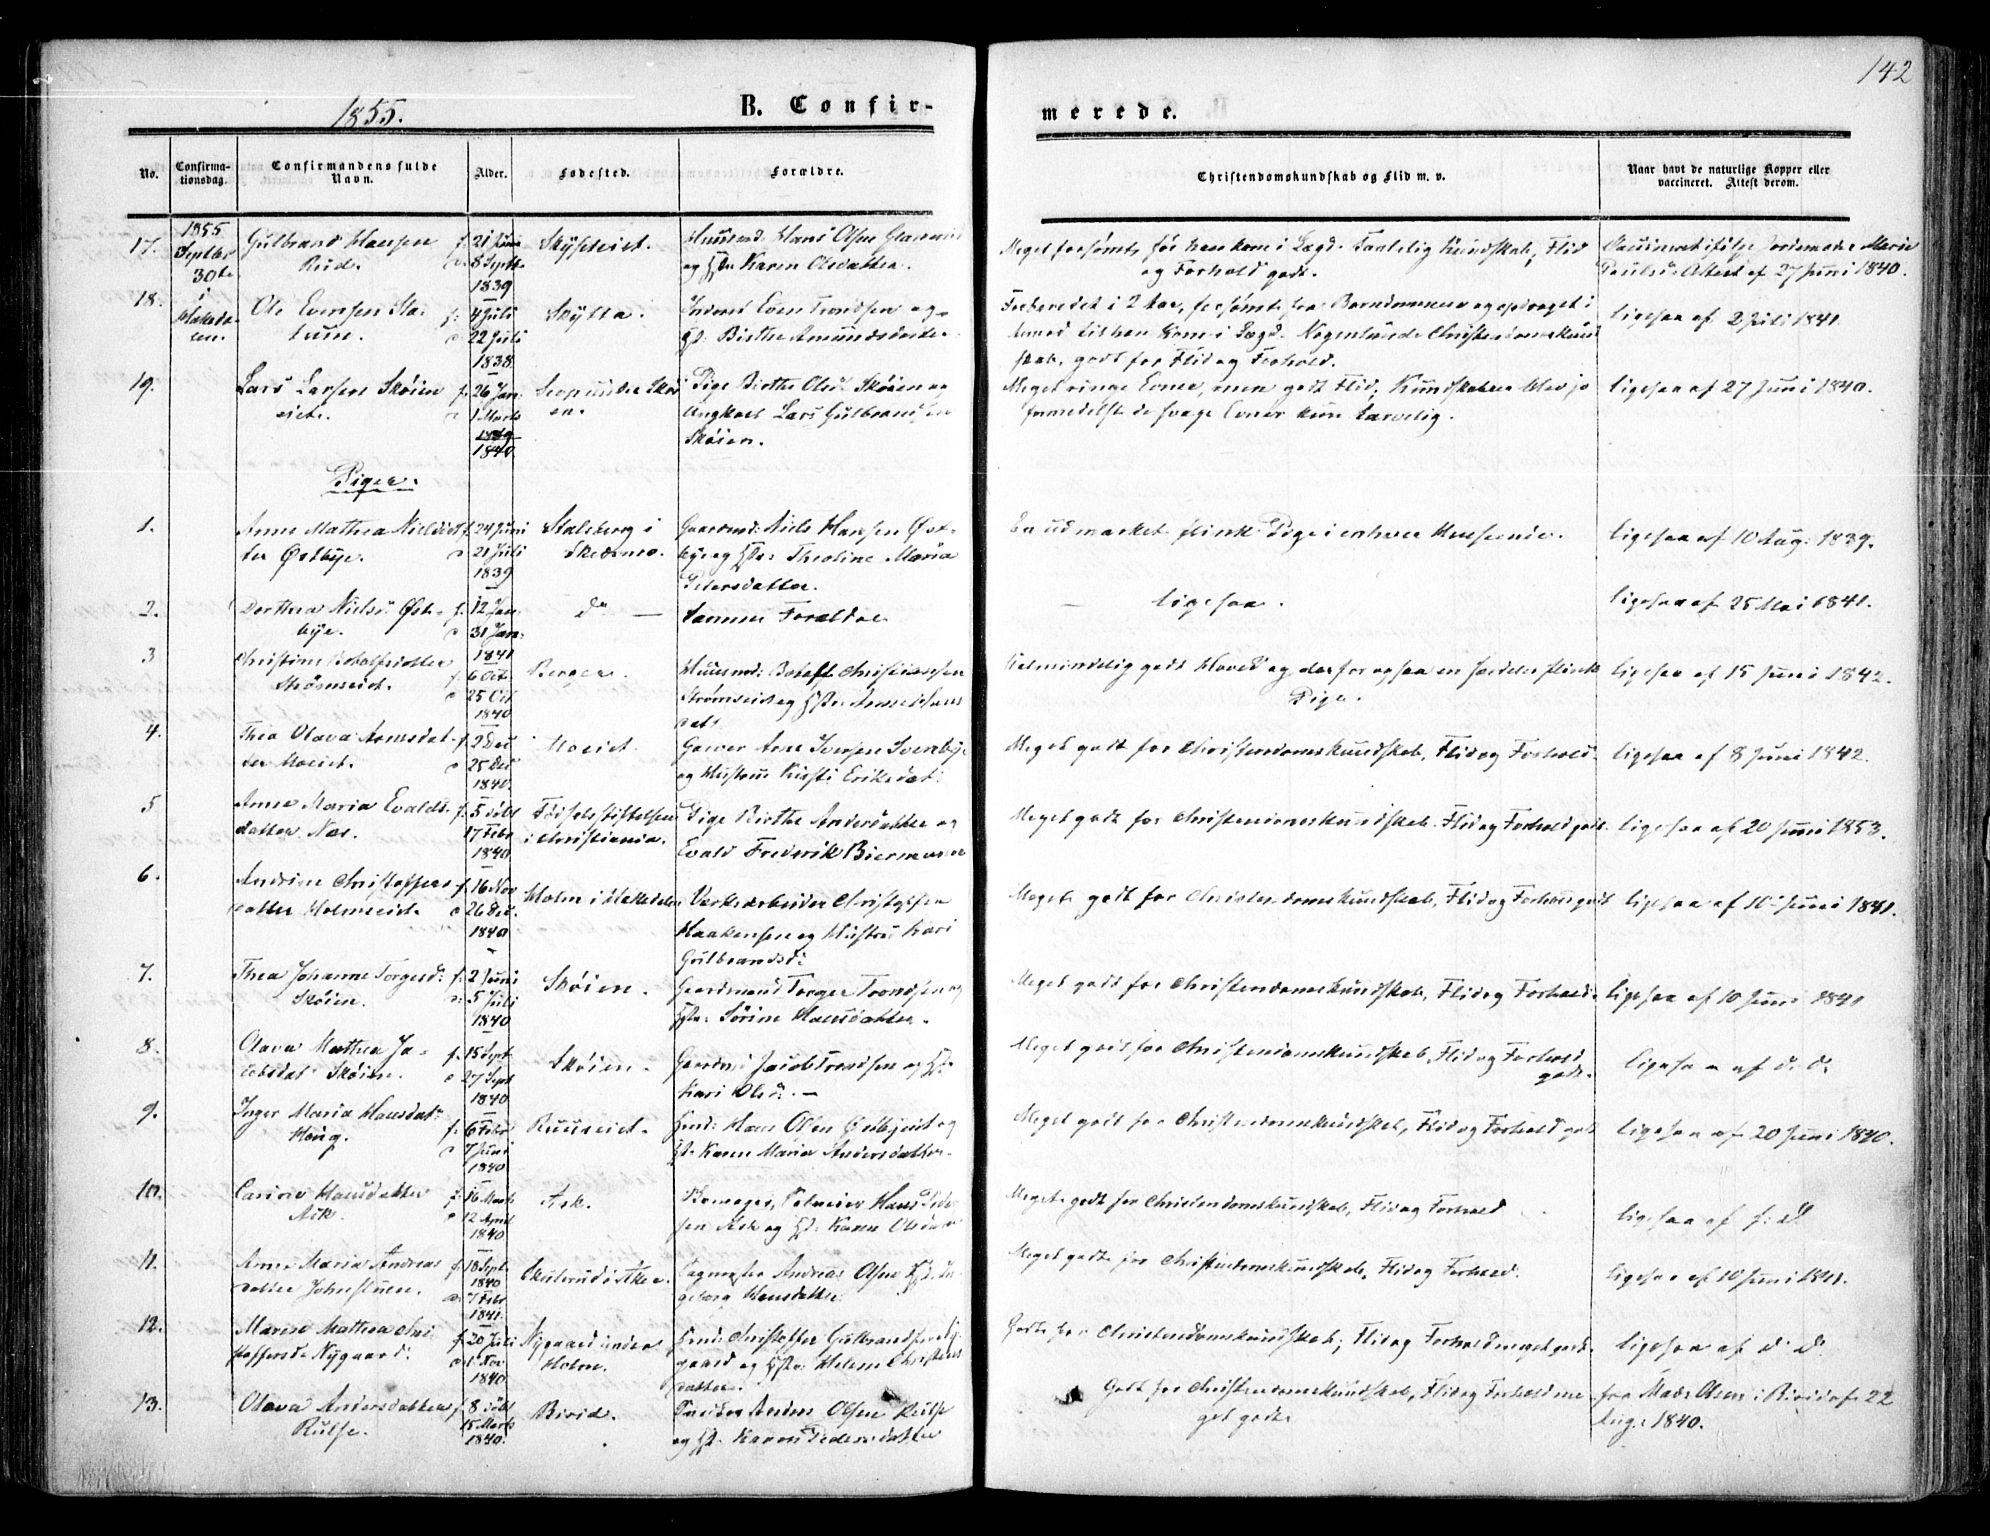 142
1855.
B. Confir-
merede.
No.
Confirma-
tionsdag.
Confirmandens fulde
Navn.
Alder.
Fødested.
Forældre.
Christendomskundskab og Flid m. v.
Naar havt de naturlige Kopper eller
vaccineret. Attest derom.
17.
1855
Septbr
30te
Gulbrand Hansen
Rud.
f. 21 Juni
8 Septb.
1839
Huusmd. Hans Olsen
og Hstr. Karen Olsdatter.
Meget forsømt, før han kom i Lægd. Taalelig Kundskab, Flid
og Forhold godt.
Marie
Attest af 27 Juni 1840.
18.
i
Ole Evensen
f. 4 Juli
22 Juli
1838.
Skytta.
Inderst Even Trondsen og
H. Birthe Amundsdatter.
Forberedet i 2 Aar, forsømt fra Barndommen og opdraget i
Armod til han kom i Lægd. Nogenlunde Christendomskund
skab, godt for Flid og Forhold.
ligesaa af 2 Juli 1841.
19.
Lars Larsen Skøien
eiet.
f. 26 Jan.
1 Marts
1839
1840.
under Skøi
en.
Pige Birthe Olsd. Skøien og
Ungkarl Lars Gulbrandsen
Skøien.
Meget ringe Evner, men godt Flid; Kundskaben blev jo
formedelst de svage Evner kun tarvelig.
ligesaa af 27 Juni 1840.
Piger.
1.
Anne Mathea Nielsdat
ter Østbye.
f. 24 Juni
21 Juli
1839
Stalsberg i
Skedsmo.
Gaardmd: Niels Hansen Øst-
bye og Hstr. Theoline Maria
Petersdatter.
En udmærket flink Pige i enhver Henseende.
ligesaa af 10 Aug. 1839.
2.
Dorthea Niels. Øst-
bye.
f. 12 Jan.
31 Jan.
1841
do —
Samme Forældre
— ligesaa.
ligesaa af 25 Mai 1841.
3
Christine
Strømseiet.
f. 6 Oct.
25 Oct
1840
Berger.
Huusmd: Christiansen
Strømseiet og Hstr. Anne Hans
datr
Almindelig godt Hoved og derfor ogsaa en særdeles flink
Pige.
ligesaa af 15 Juni 1842.
4.
Thea Olava Arnesdat-
ter Moeiet.
f. 2 Dec
25 Dec
1840.
Moeiet.
Arne Iversen
og Hustru Kirsti Eriksdat.
Meget godt for Christendomskundskab, Flid og Forhold.
ligesaa af 8 Juni 1842.
5
Anne Maria Evalds
datter Næs.
f. 5
17 Febr
1840
Fødselsstiftelsen
i Christiania.
Pige Birthe Andersdatter og
Evald Frederik Biermann
Meget godt for Christendomskundskab. Flid og Forhold godt.
ligesaa af 20 Juni 1853.
6.
Andrine Christophers
datter Holmseiet.
f. 16 Nov
26 Dec.
1840
Holm i Hakedalen
Værksarbeider Christoffer
Haakensen og Hustru Kari
Gulbrandsd:
Meget godt for Christendomskundskab, Flid og Forhold godt
ligesaa af 10 Juni 1841.
7.
Thea Johanne Torgersd:
Skøien.
f. 2 Juni
5 Juli
1840
Skøien.
Gaardmand Torger Trondsen og
Hstr. Sørine Hansdatter.
Meget godt for Christendomskundskab, Flid og Forhold.
ligesaa af 10 Juni 1841
8.
Olava Mathea Ja-
cobsdatr Skøien.
f. 15 Sept
27 Sept
1840
Skøien.
Gaardm: Jacob Trondsen og H.
Kari Olsd. —
Meget godt for Christendomskundskab, Flid og Forhold
godt.
ligesaa af d. d.
9.
Inger Maria Hansdatr
Haug.
f. 6 Febr
7 Juni
1840
Ruuseiet.
Hans Olsen og
H. Karen Maria Andersdatter.
Meget godt for Christendomskundskab, Flid og Forhold godt
ligesaa af 20 Juni 1840.
10.
Hansdatter
Ask.
f. 16 Marts
12 April
1840
Ask.
Hans Peder
sen Ask og H. Karen
Meget godt for Christendomskundskab, Flid og Forhold
ligesaa af
11.
Anne Maria Andreas
datter
f. 18 Sept.
1840
7 Febr
1841.
Andreas Olsen H. In
geborg Hansdatter.
Meget godt for Christendomskundskab, Flid og Forhold.
ligesaa af 10 Juni 1841.
12.
Maren Mathea Chri
stoffersd. Nygaard.
f. 20 Juli
1 Nov.
1840
Nygaard under
Holm.
Christoffer Gulbrandsen Ny
gaard og Hstr. Helene Christens
datter.
Godt for Christendomskundskab; Flid og Forhold meget godt.
ligesaa af d. d.
13.
Olava Andersdatter
f. 8
15 Marts
1840.
Birid.
Anders Olsen
og H. Karen Pedersdatter
Godt for Christendomskundskab, Flid og Forhold me
get godt.
fra Mads Olsen i Birid af 22
Aug. 1840.